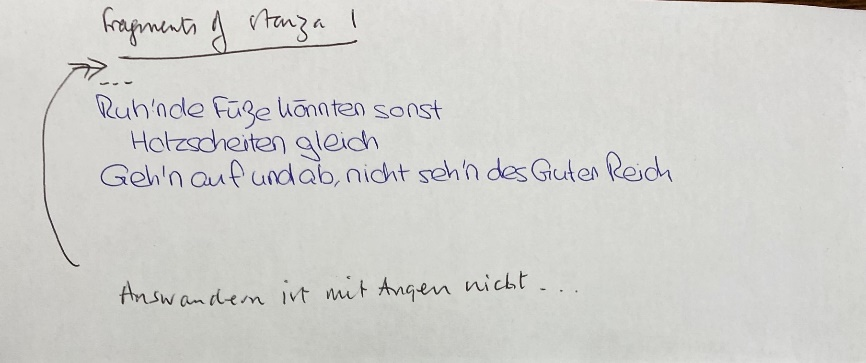 Fragments of stanza 1
---
Ruh'nde Füße könnten sonst
Holzscheiten gleich
Geh'n auf und ab, nicht seh'n des Guten Reich
Auswandern ist mit Augen nicht...